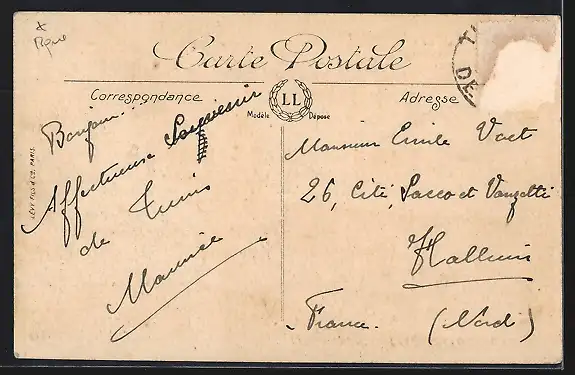 Carte Postale
Correspondance
LL
Modèle Déposé
Adresse
LÉVY FILS & CIE, PARIS
Bonjour.
Affectueuse Souvenir
de Tunis
Maurice
Monsieur Emile Vact
26, Cité, Sacco et Vanzetti
Halluin
France. (Nord)
DE